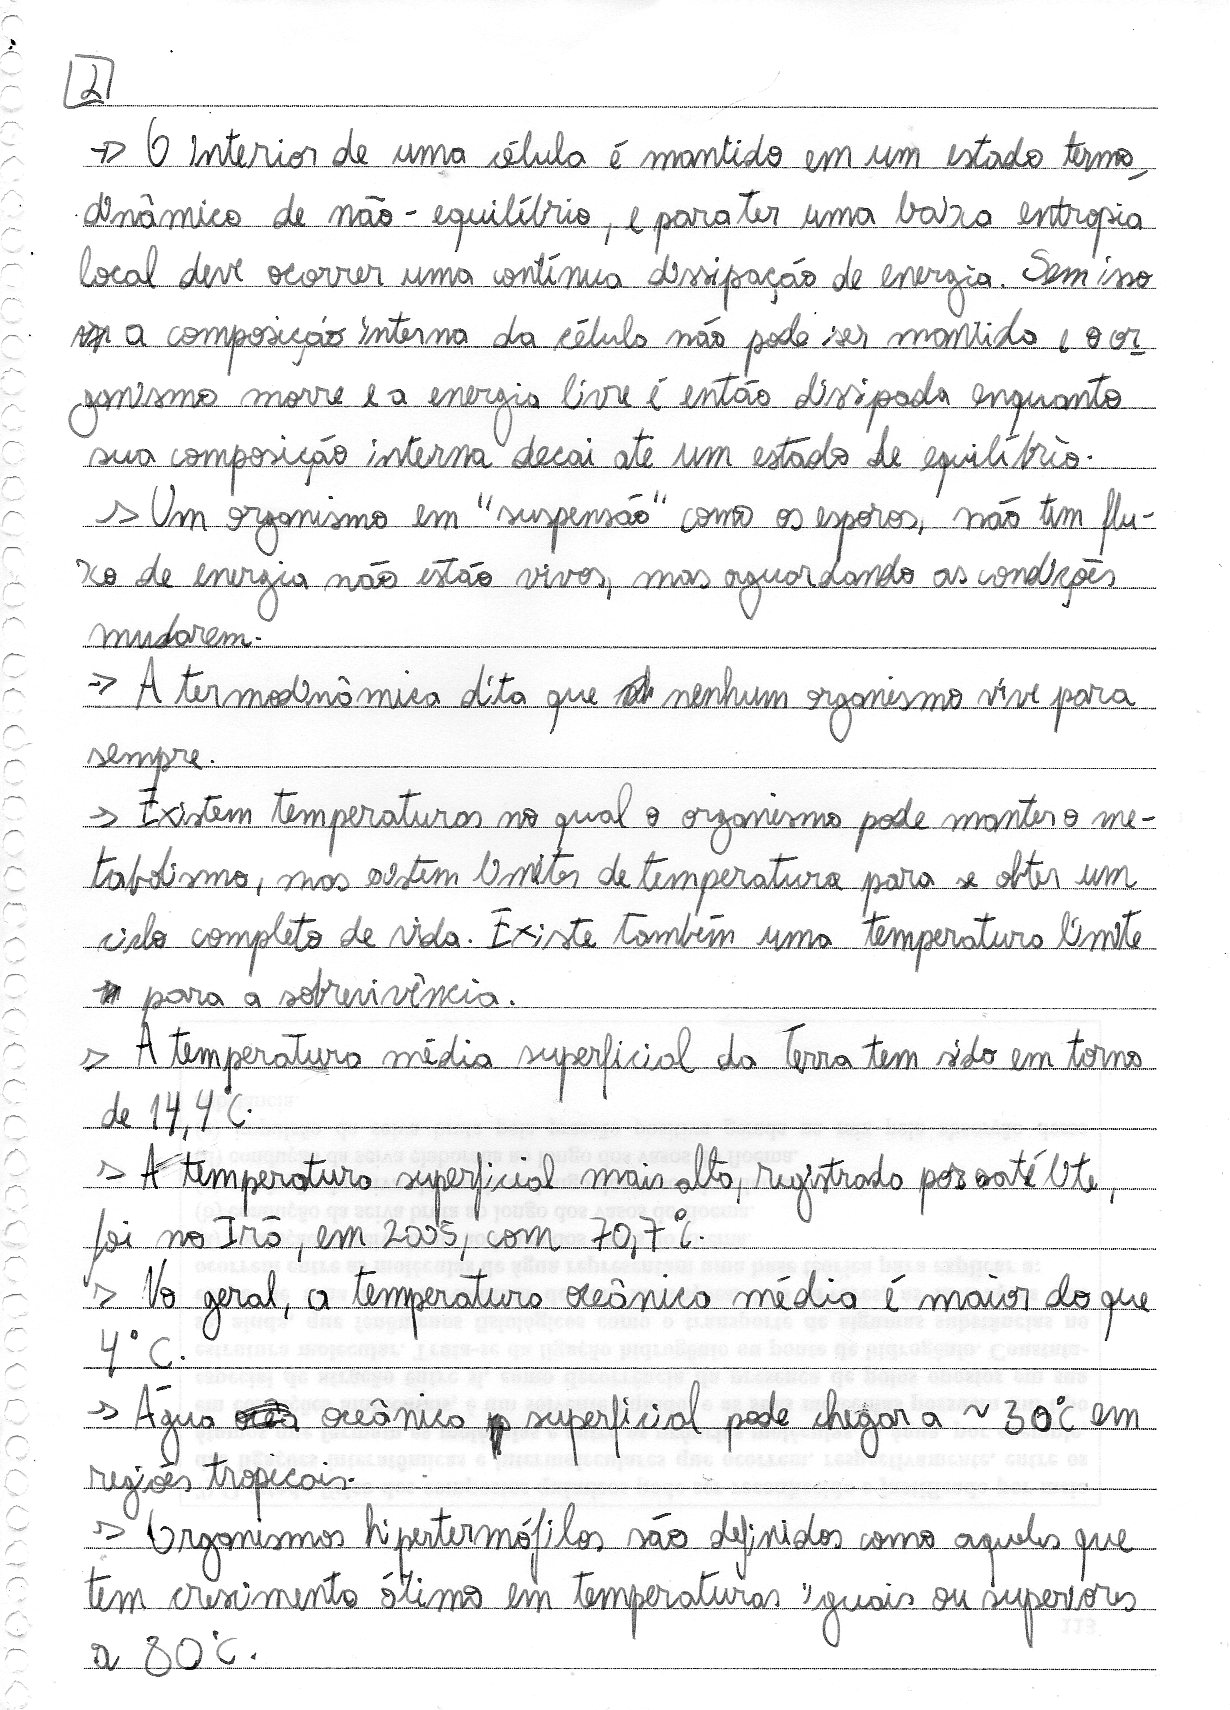 2
→ O interior de uma célula é mantido em um estado termo-
dinâmico de não-equilíbrio, e para ter uma baixa entropia
local deve ocorrer uma contínua dissipação de energia. Sem isso
a composição interna da célula não pode ser mantida e o or-
ganismo morre e a energia livre é então dissipada enquanto
sua composição interna decai até um estado de equilíbrio.
→ Um organismo em "suspensão" como os esporos, não tem flu-
xo de energia não estão vivos, mas aguardando as condições
mudarem.
→ A termodinâmica dita que nenhum organismo vive para
sempre.
→ Existem temperaturas no qual o organismo pode manter o me-
tabolismo, mas existem limites de temperatura para se obter um
ciclo completo de vida. Existe também uma temperatura limite
para a sobrevivência.
→ A temperatura média superficial da Terra tem sido em torno
de 14,4°C.
→ A temperatura superficial mais alta, registrada por satélite,
foi no Irã, em 2005, com 70,7°C.
→ No geral, a temperatura oceânica média é maior do que
4°C.
→ Água oceânica superficial pode chegar a ~ 30°C em
regiões tropicais.
→ Organismos hipertermófilos são definidos como aqueles que
tem crescimento ótimo em temperaturas iguais ou superiores
a 80°C.